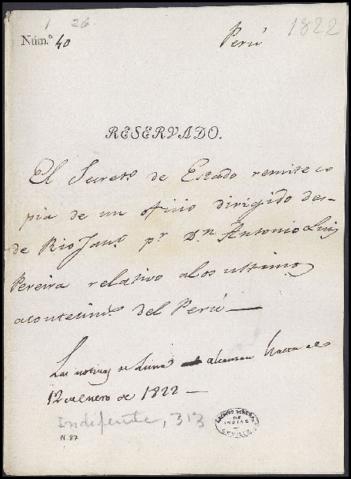 1 26
Núm.º 40 Perú 1822
RESERVADO.
El Secretº de Estado remite co
pia de un oficio dirigido des-
de Rio Janº pr Dn Antonio Luis
Pereira relativo a los ultimos
acontecimtos del Perú—
Las noticias de Lima alcanzan hasta el
12 de enero de 1822—
Indiferente, 313
N. 87
ARCHIVO GENERAL
DE
INDIAS
SEVILLA